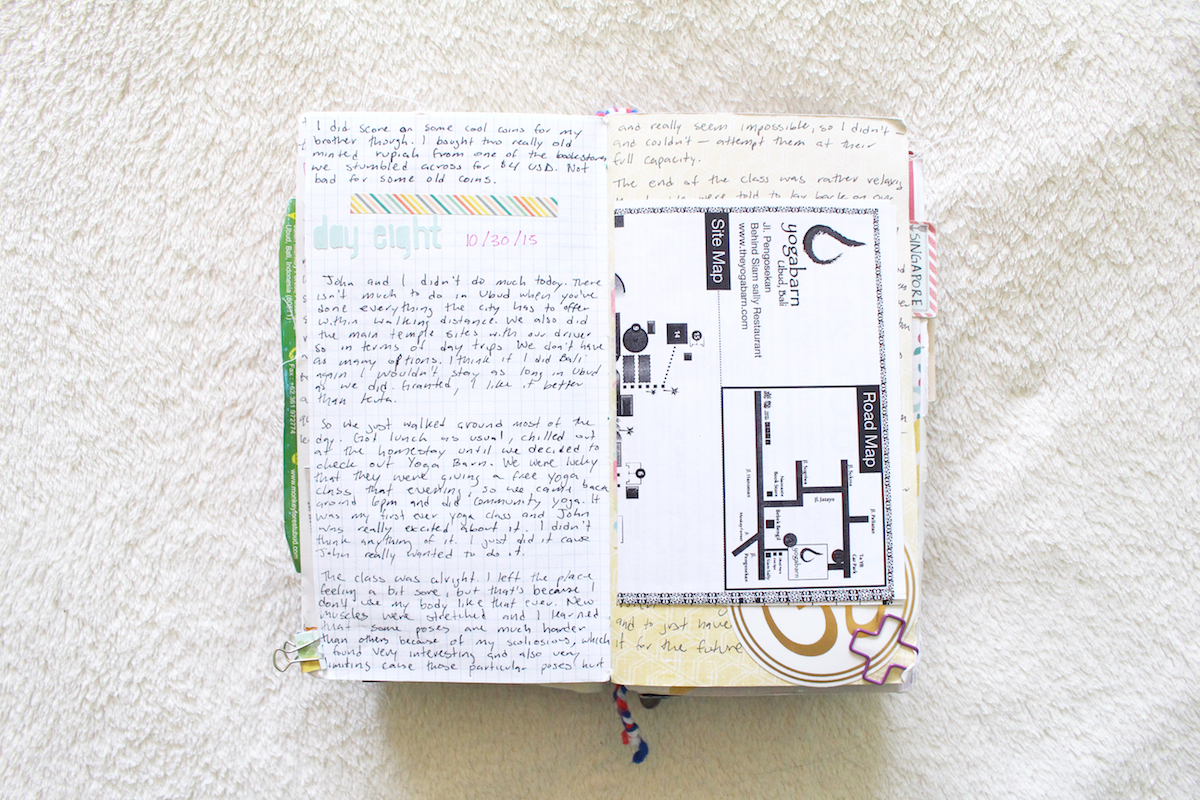 I did score on some cool coins for my
brother though. I bought two really old
minted rupiah from one of the bookstores
we stumbled across for $4 USD. Not
bad for some old coins.
day eight
10/30/15
John and I didn't do much today. There
isn't much to do in Ubud when you've
done everything the city has to offer
within walking distance. We also did
the main temple sites with our driver
so in terms of day trips we don't have
as many options. I think if I did Bali
again I wouldn't stay as long in Ubud
as we did. Granted, I like it better
than Kuta.
So we just walked around most of the
day. Got lunch as usual, chilled out
at the homestay until we decided to
check out Yoga Barn. We were lucky
that they were giving a free yoga
class that evening, so we came back
around 6pm and did community yoga. It
was my first ever yoga class and John
was really excited about it. I didn't
think anything of it. I just did it cause
John really wanted to do it.
The class was alright. I left the place
feeling a bit sore, but that's because I
don't use my body like that ever. New
muscles were stretched and I learned
that some poses are much harder
than others because of my scoliosis, which
I found very interesting and also very
limiting cause those particular poses hurt
and really seem impossible, so I didn't
and couldn't — attempt them at their
full capacity.
The end of the class was rather relaxing
were told to lay back on our
yogabarn
Ubud, Bali
Jl. Pengosekan
Behind Siam sally Restaurant
www.theyogabarn.com
Site Map
14
Road Map
Jl. Sukma
Jl. Peliatan
Jl. Sugriwa
Jl. Jatayu
Jl. Hanoman
Bebek Bengil
To YB
Car Park
Pengosekan
yogabarn
and to just have
it for the future
SINGAPORE
Ubud, Bali, Indonesia
Fax +62 361 972774
www.monkeyforestubud.com